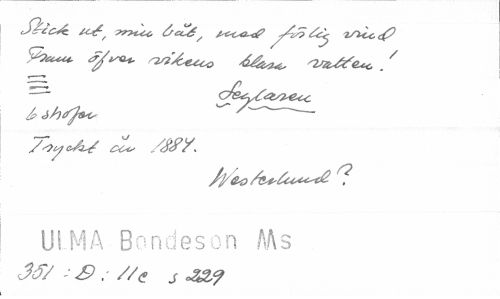 Stick ut, min båt, med förlig vind
Fram öfver vikens klara vatten!
Seglaren
6 strofer
Tryckt år 1884.
Westerlund?
ULMA Bondeson Ms
351 : D : 11c s 229